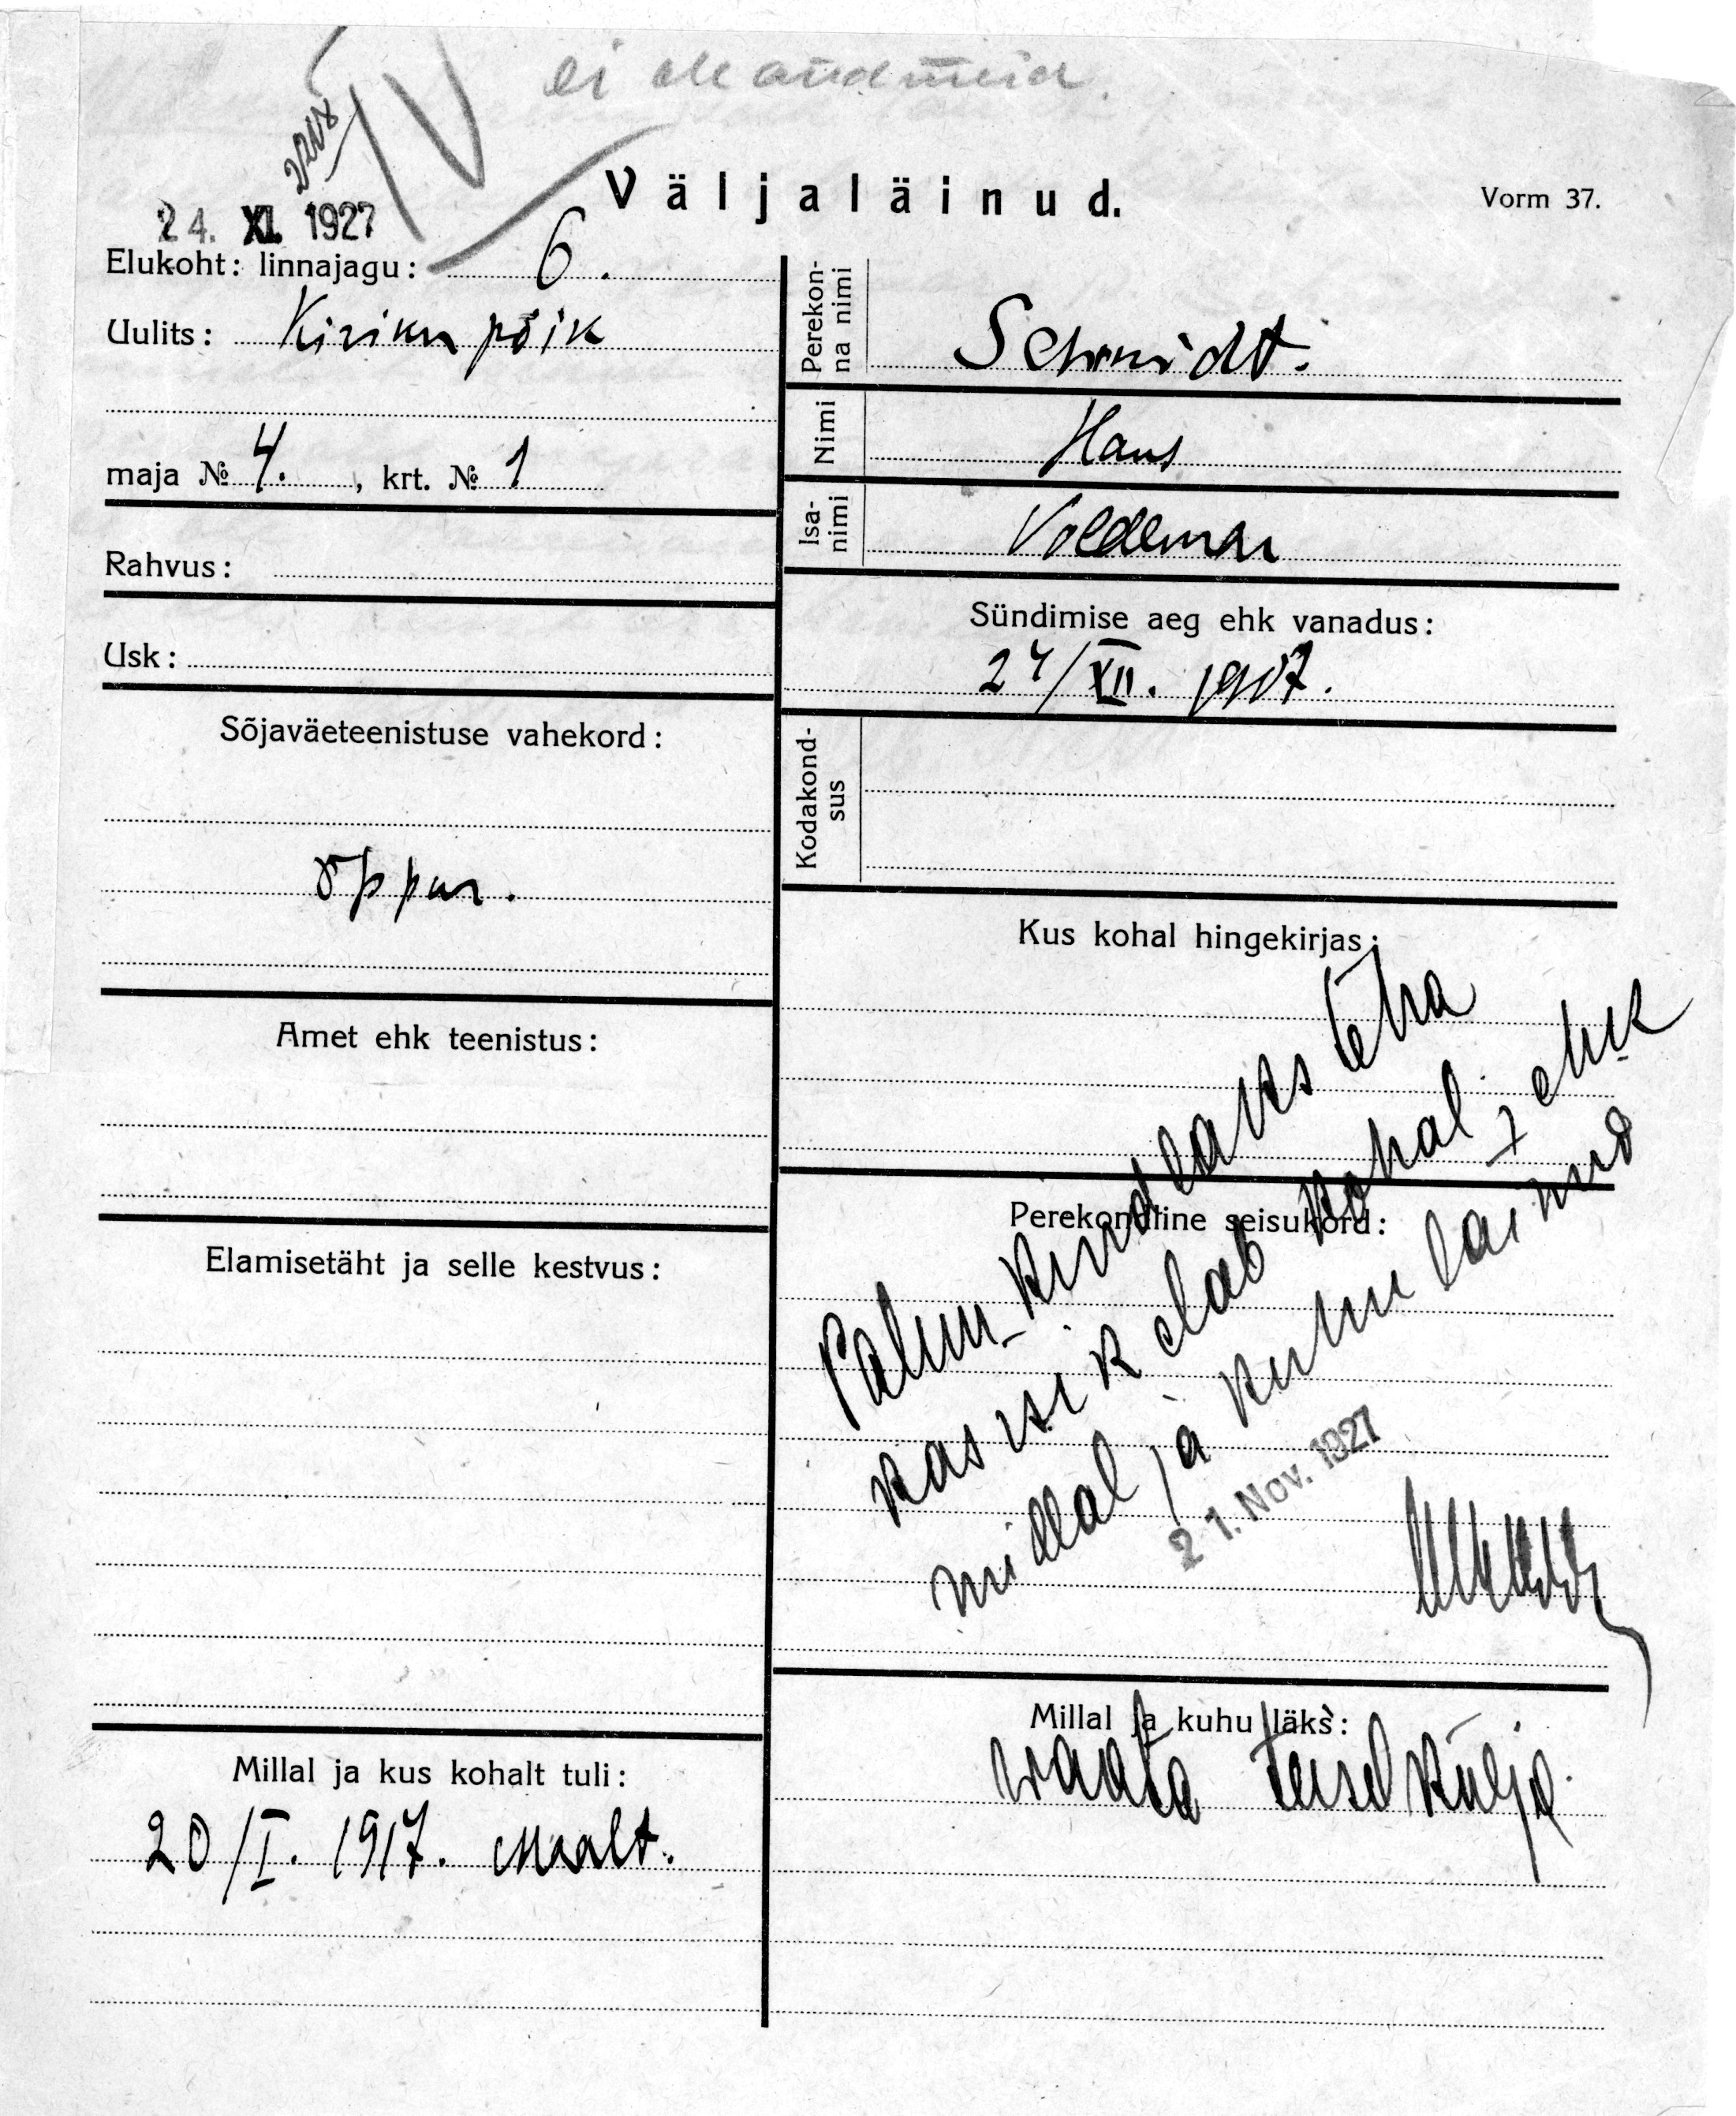 ei ole andmeid.
Väljaläinud.
Vorm 37.
24. XI. 1927
Elukoht: linnajagu: 6.
Uulits: Kiriku põik
maja № 4. , krt. № 1
Rahvus:
Usk:
Sõjaväeteenistuse vahekord:
õppur.
Amet ehk teenistus:
Elamisetäht ja selle kestvus:
Millal ja kus kohalt tuli:
20/I. 1917. Maalt.
Perekon-
na nimi
Schmidt.
Nimi
Hans
Isa-
nimi
Voldemar
Sündimise aeg ehk vanadus:
24/XII. 1907.
Kodakond-
sus
Kus kohal hingekirjas:
Perekondline seisukord:
Palun kindlaks teha
kas isik elab kohal, ehk
millal ja kuhu läinud
21. Nov. 1927
Millal ja kuhu läks:
waata teisel külje